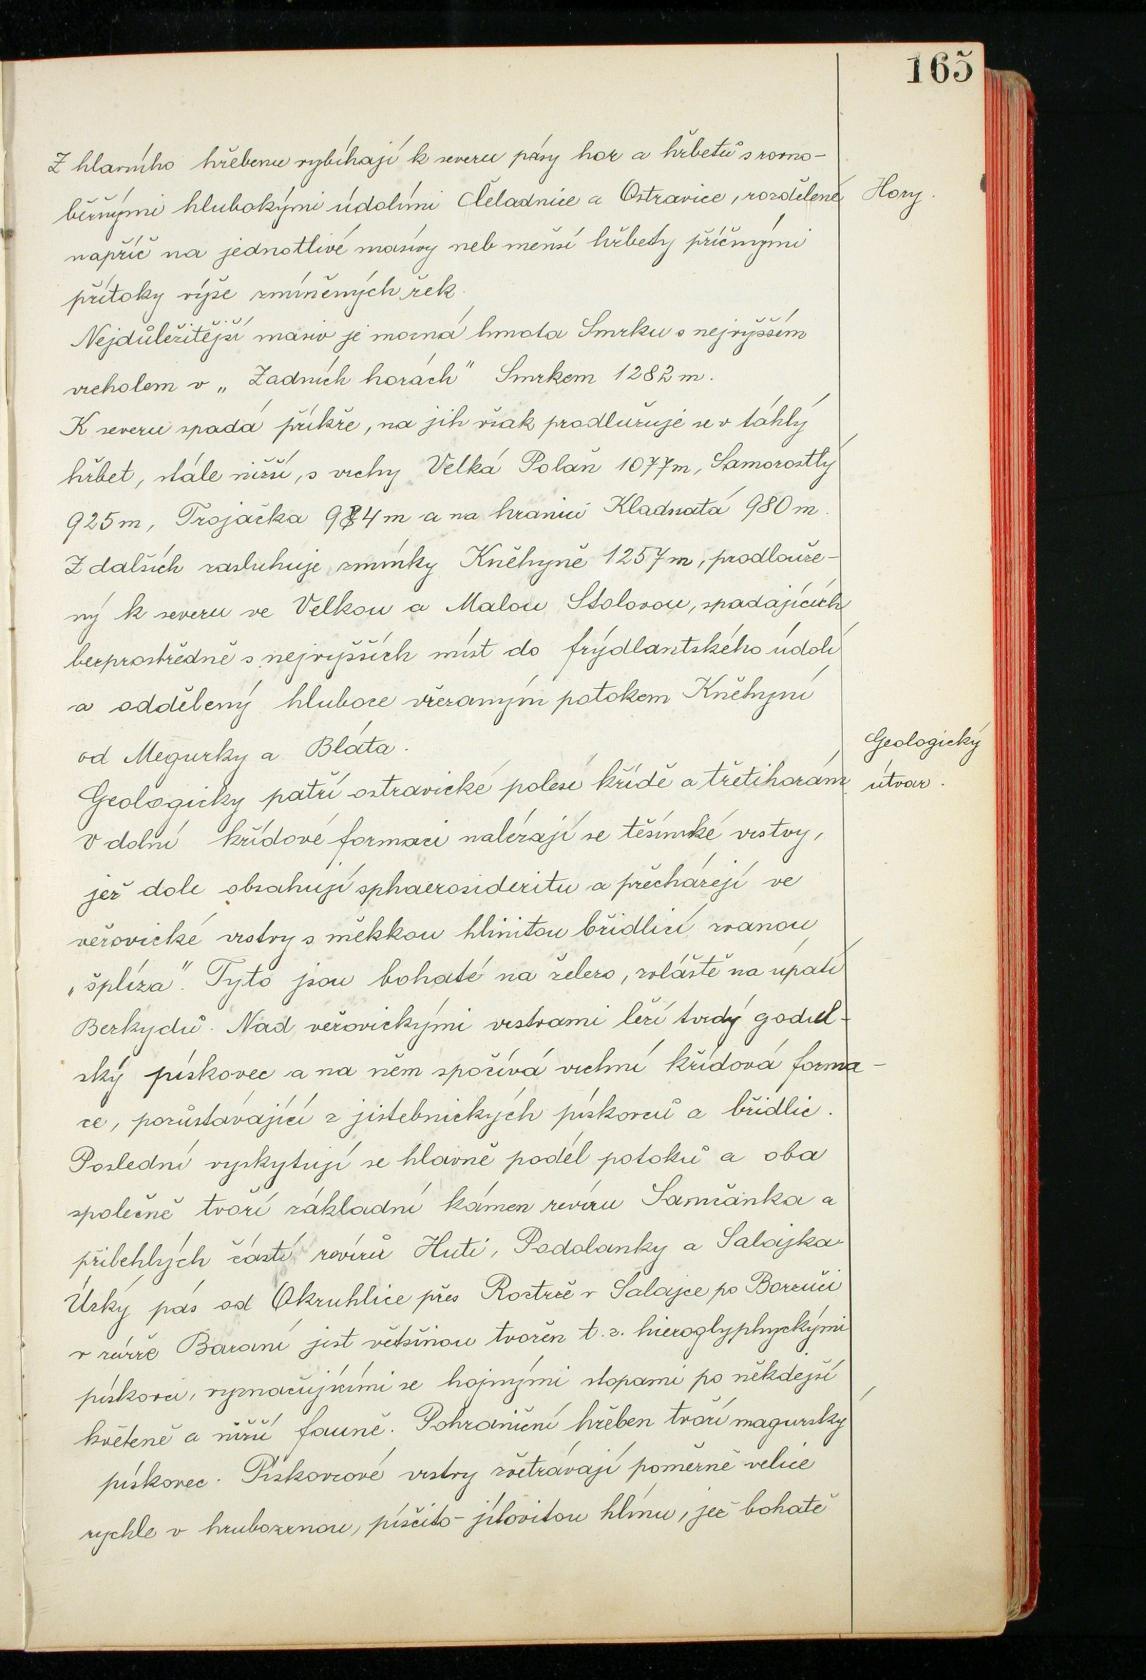 165
Z hlavního hřebenu vybíhají k severu pásy hor a hřbetů s rovno-
běžnými hlubokými údolími Čeladnice a Ostravice, rozdělené
Hory.
napříč na jednotlivé masívy neb menší hřbety příčnými
přítoky výše zmíněných řek.
Nejdůležitější masiv je mocná hmota Smrku s nejvyšším
vrcholem v „Zadních horách" Smrkem 1282 m.
K severu spadá příkře, na jih však prodlužuje se v táhlý
hřbet, stále nižší, s vrchy Velká Polaň 1077 m, Samorostlý
925 m, Trojačka 984 m a na hranici Kladnatá 980 m.
Z dalších zasluhuje zmínky Kněhyně 1257 m, prodlouže-
ný k severu ve Velkou a Malou Stolovou, spadajících
bezprostředně s nejvyšších míst do frýdlantského údolí
a oddělený hluboce vřezaným potokem Kněhyní
od Megurky a Bláta.
Geologický
útvar.
Geologicky patří ostravické polesí křídě a třetihorám
V dolní křídové formaci nalézají se těšínské vrstvy,
jež dole obsahují sphaerosideritu a přecházejí ve
veřovické vrstvy s měkkou hlinitou břidlicí zvanou
„šplíza". Tyto jsou bohaté na železo, zvláště na úpatí
Bezkydů. Nad veřovickými vrstvami leží tvrdý godul-
ský pískovec a na něm spočívá vrchní křídová forma-
ce, pozůstávající z jistebnických pískovců a břidlic.
Poslední vyskytují se hlavně podél potoků a oba
společně tvoří základní kámen revíru Samčanka a
přilehlých částí revírů Huti, Podolanky a Salajka
Úzký pás od Okruhlice přes Roztrže v Salajce po Borčučí
v rúzře Baraní jist většinou tvořen t. z. hieroglyphyckými
pískovci, vyznačujícími se hojnými stopami po někdejší
květeně a nižší fauně. Pohraniční hřeben tvoří magurský
pískovec. Pískovcové vrstvy zvětrávají poměrně velice
rychle v hrubozrnou, písčito-jílovitou hlínu, jež bohatě